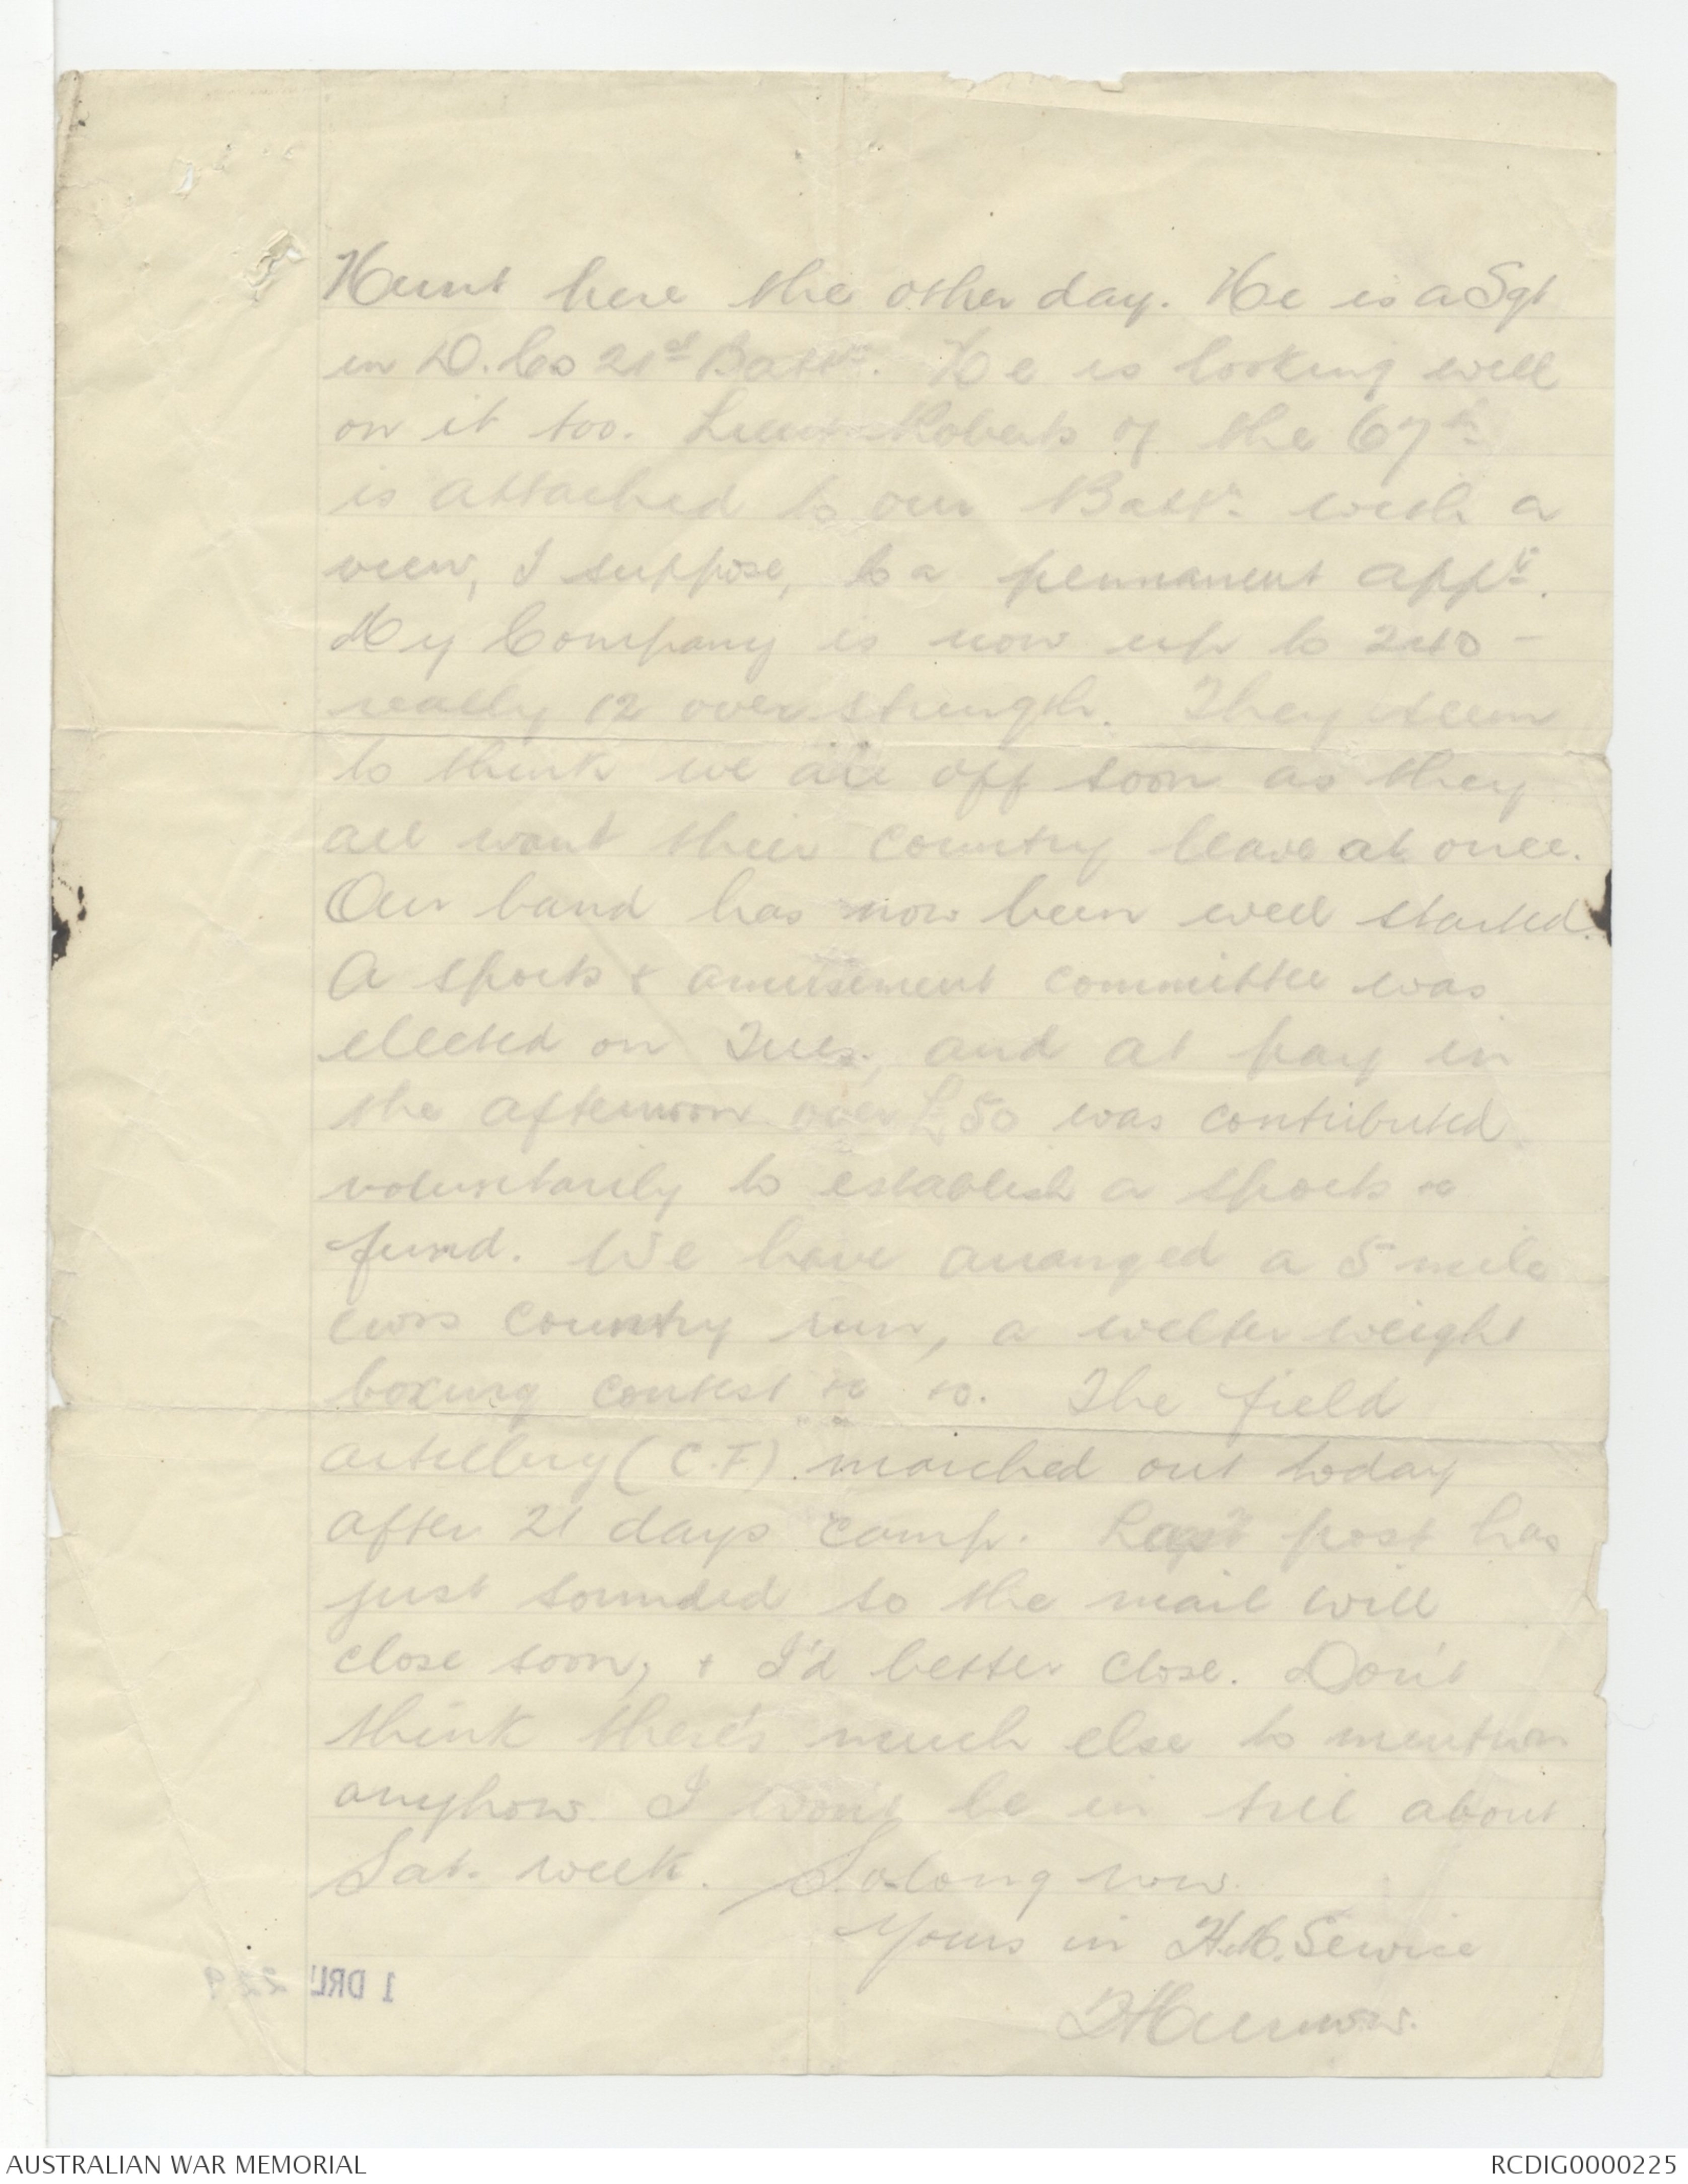 Hunt here the other day. He is a Sgt
in D. Co 21st Battn. He is looking well
on it too. Lieut Roberts of the 67th
is attached to our Battn. with a
view, I suppose, to a permanent appt.
My Company is now up to 240 –
really 12 over strength. They seem
to think we are off soon as they
all want their country leave at once.
Our band has now been well started.
A sports & amusement committee was
elected on Tues., and at pay in
the afternoon over £50 was contributed
voluntarily to establish a sports &c
fund. We have arranged a 5 mile
cross country run, a welter weight
boxing contest &c &c. The field
artillery (C.F.) marched out today
after 21 days camp. Last post has
just sounded so the mail will
close soon, & I'd better close. Don't
think there's much else to mention
anyhow. I won't be in till about
Sat. week. So long now.
Yours in H.M. Service
1 DRL 229
AUSTRALIAN WAR MEMORIAL
RCDIG0000225